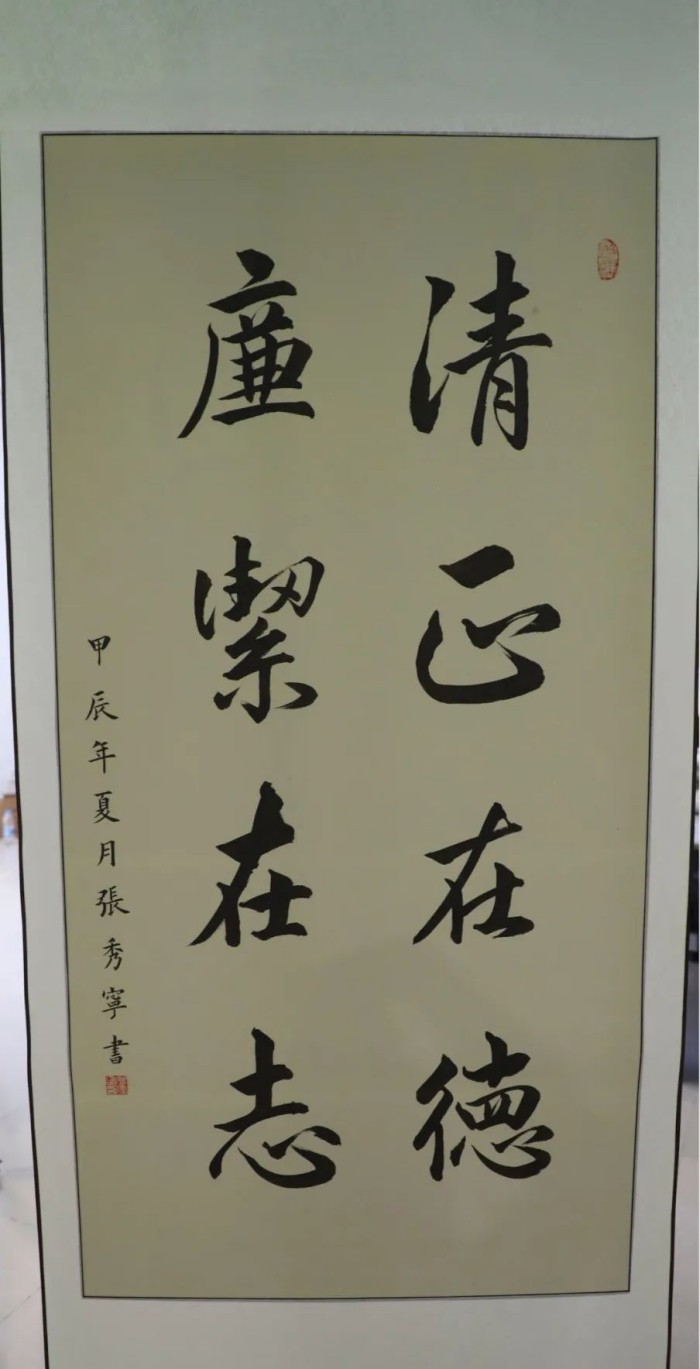 清正在德
廉潔在志
甲辰年夏月張秀寧書